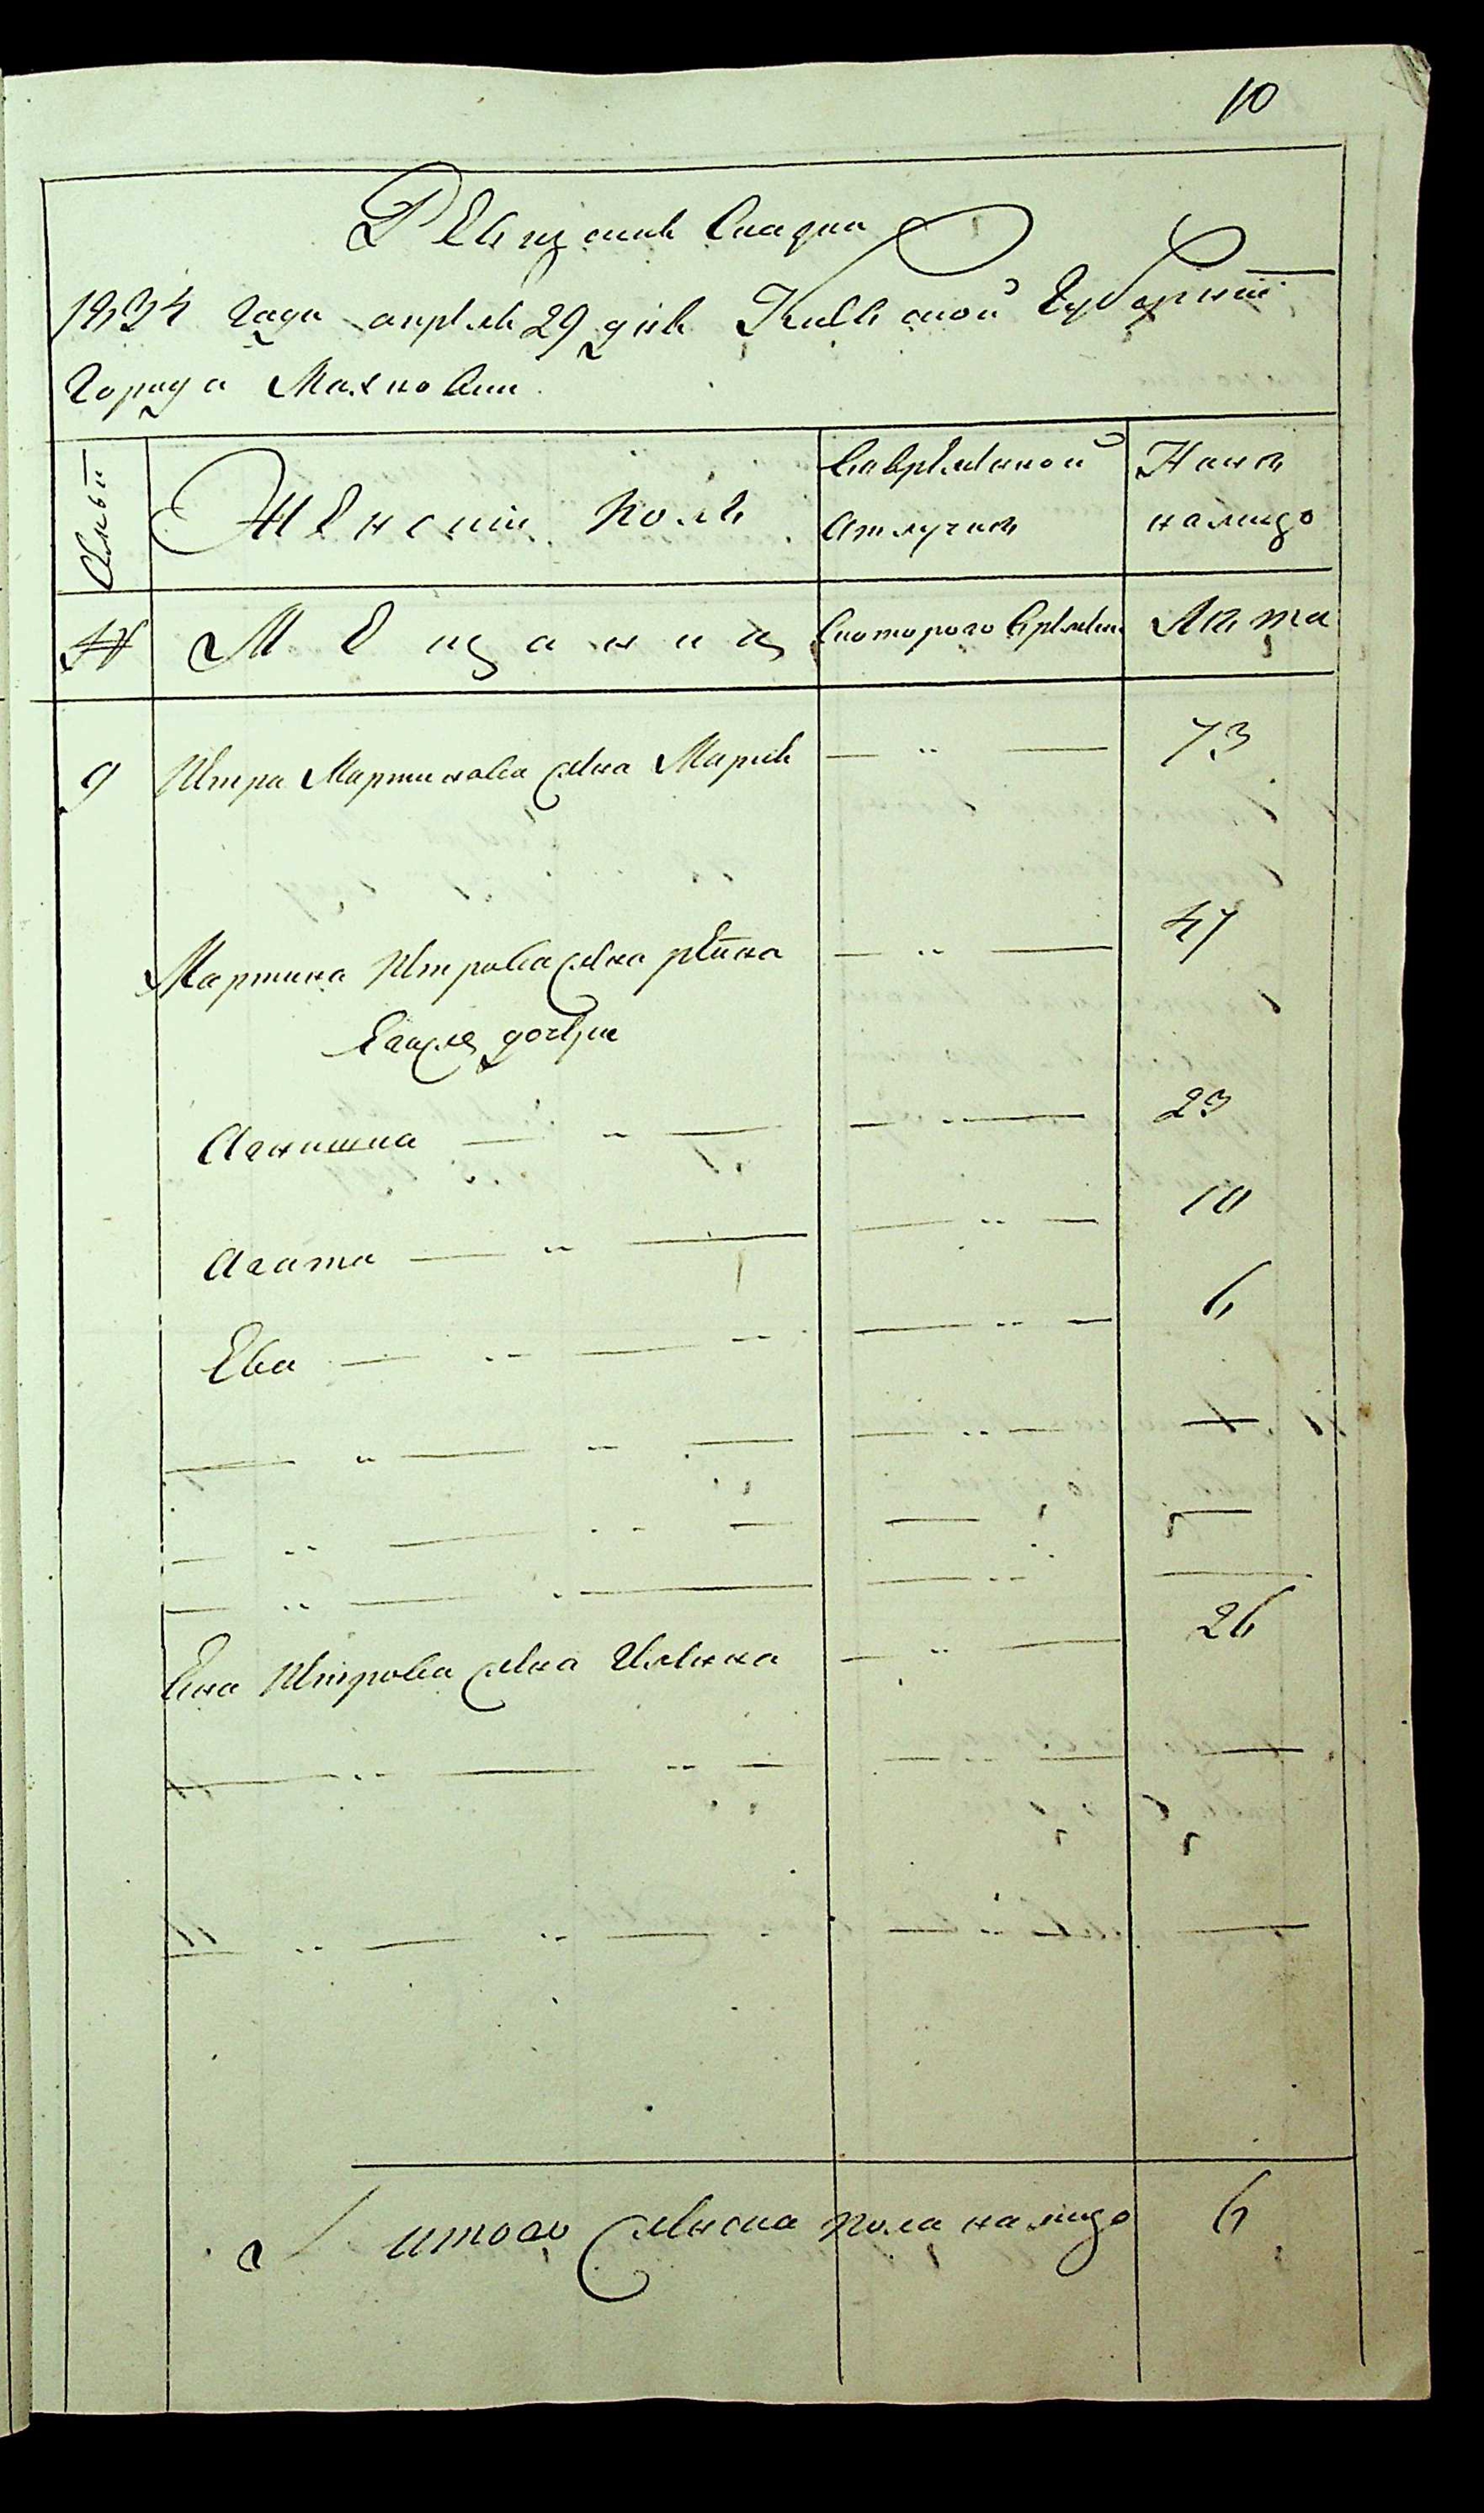 10
Ревизская Сказка
1834 года апреля 29 дня Киевской Губернии
Города Махновки
Семьи
Женский Полъ
Вовременной отлучке
Ныне налицо
№
Мещанинъ
Скоторого времени
Лета
9 Петра Мартинова жена Марья — " — 73
Мартина Петрова жена — " — 47
Его дочери
Агнишка — " — — " — 23
Агата — " — — " — 10
Ева — " — — " — 6
Петрова жена — " — 26
итого женска пола налицо 6